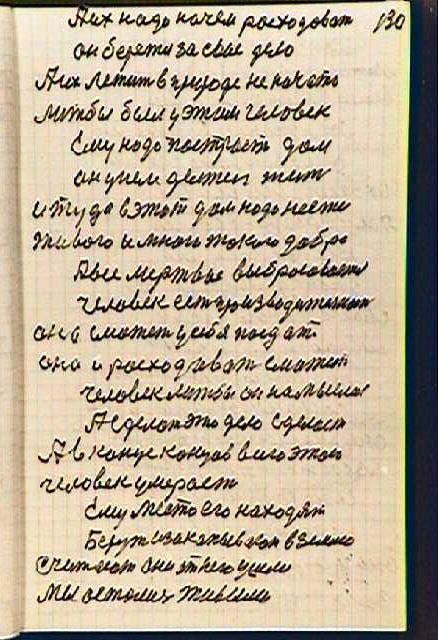 А их надо начем расходоват 130
он берет и за свое дело
А их летит в природе не начато
лишбы был у этом человек
Ему надо построит дом
он у нем должен жит
и туда в этот дом надо нести
живого и много такого добра
А все мертвое выбросоват
человек ест производителем
он и сможет у себя поедат
он и росходоват сможет
человек лишбы он намыслил
А сделат это дело сделает
А в конце концов всего этого
человек умерает
Ему место его находят
Берут и закапывают в землю
Считают они от нас ушли
Мы осталис живыми